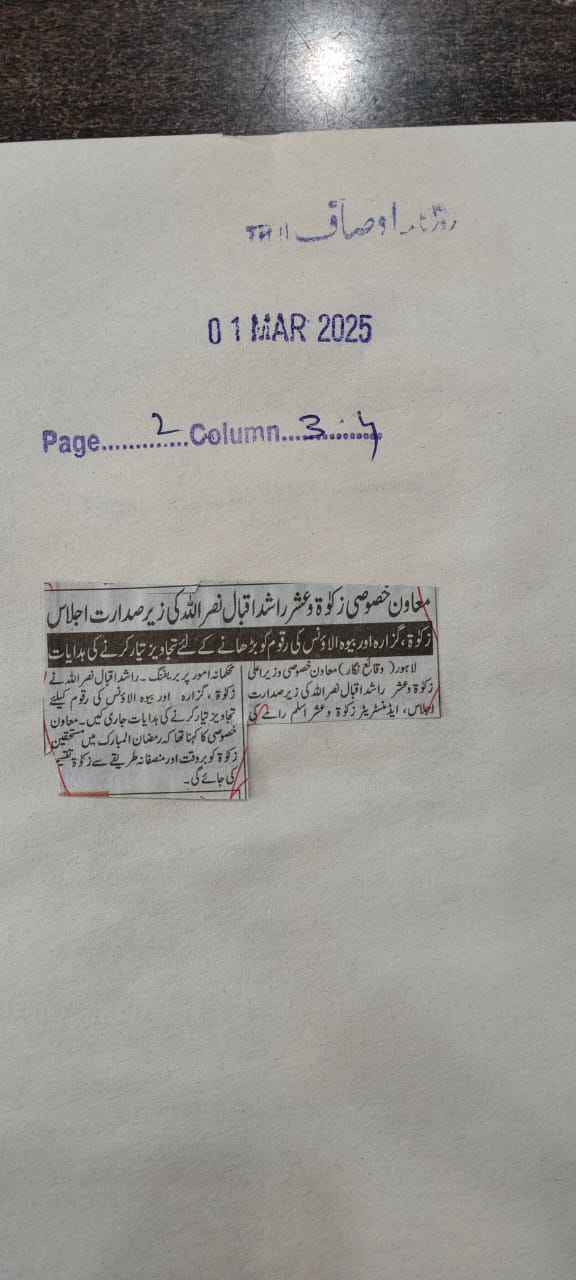 روزنامہ اوصاف
01 MAR 2025
Page.............2 Column....3..4
معاون خصوصی زکوٰۃ و عشر راشد اقبال نصر اللہ کی زیر صدارت اجلاس
زکوٰۃ، گزارہ اور بیوہ الاؤنس کی رقوم کو بڑھانے کے لئے تجاویز تیار کرنے کی ہدایات
لاہور (وقائع نگار) معاون خصوصی وزیر اعلیٰ
زکوٰۃ و عشر راشد اقبال نصر اللہ کی زیر صدارت
اجلاس، ایڈمنسٹریٹر زکوٰۃ و عشر اسلم رامے کی
محکمانہ امور پر بریفنگ۔ راشد اقبال نصر اللہ نے
زکوٰۃ، گزارہ اور بیوہ الاؤنس کی رقوم کیلئے
تجاویز تیار کرنے کی ہدایات جاری کیں۔ معاون
خصوصی کا کہنا تھا کہ رمضان المبارک میں مستحقین
زکوٰۃ کو بروقت اور منصفانہ طریقے سے زکوٰۃ تقسیم
کی جائے گی۔